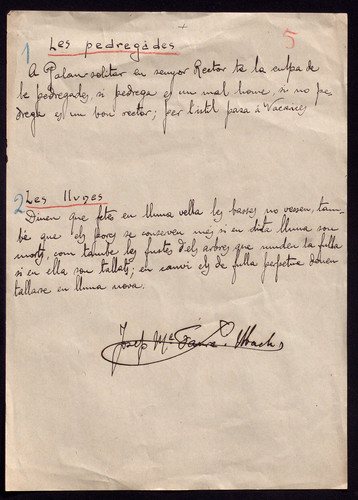 +
1 Les pedregades
5
A Palau-solitar en senyor Rector te la culpa de
le pedregades, si pedrega es un mal home, si no pe-
drega es un bon rector; per l'istil pasa á Vacarices
2 Les llunes
Diuen que fetes en lluna vella les basses no vessen, tam-
bé que els porcs se conseven més si en dita lluna son
morts, com tambe les fustes d'els arbres que muden la fulla
si en ella son tallats; en canvi els de fulla perpetua donen
tallarse en lluna nova.
Josep Mª